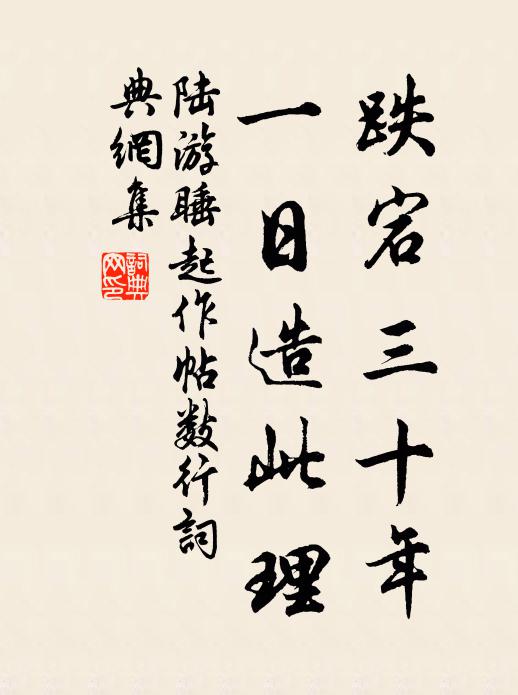 跌宕三十年
一日造此理
陆游睡起作帖数行詞
典網集
詞典网印